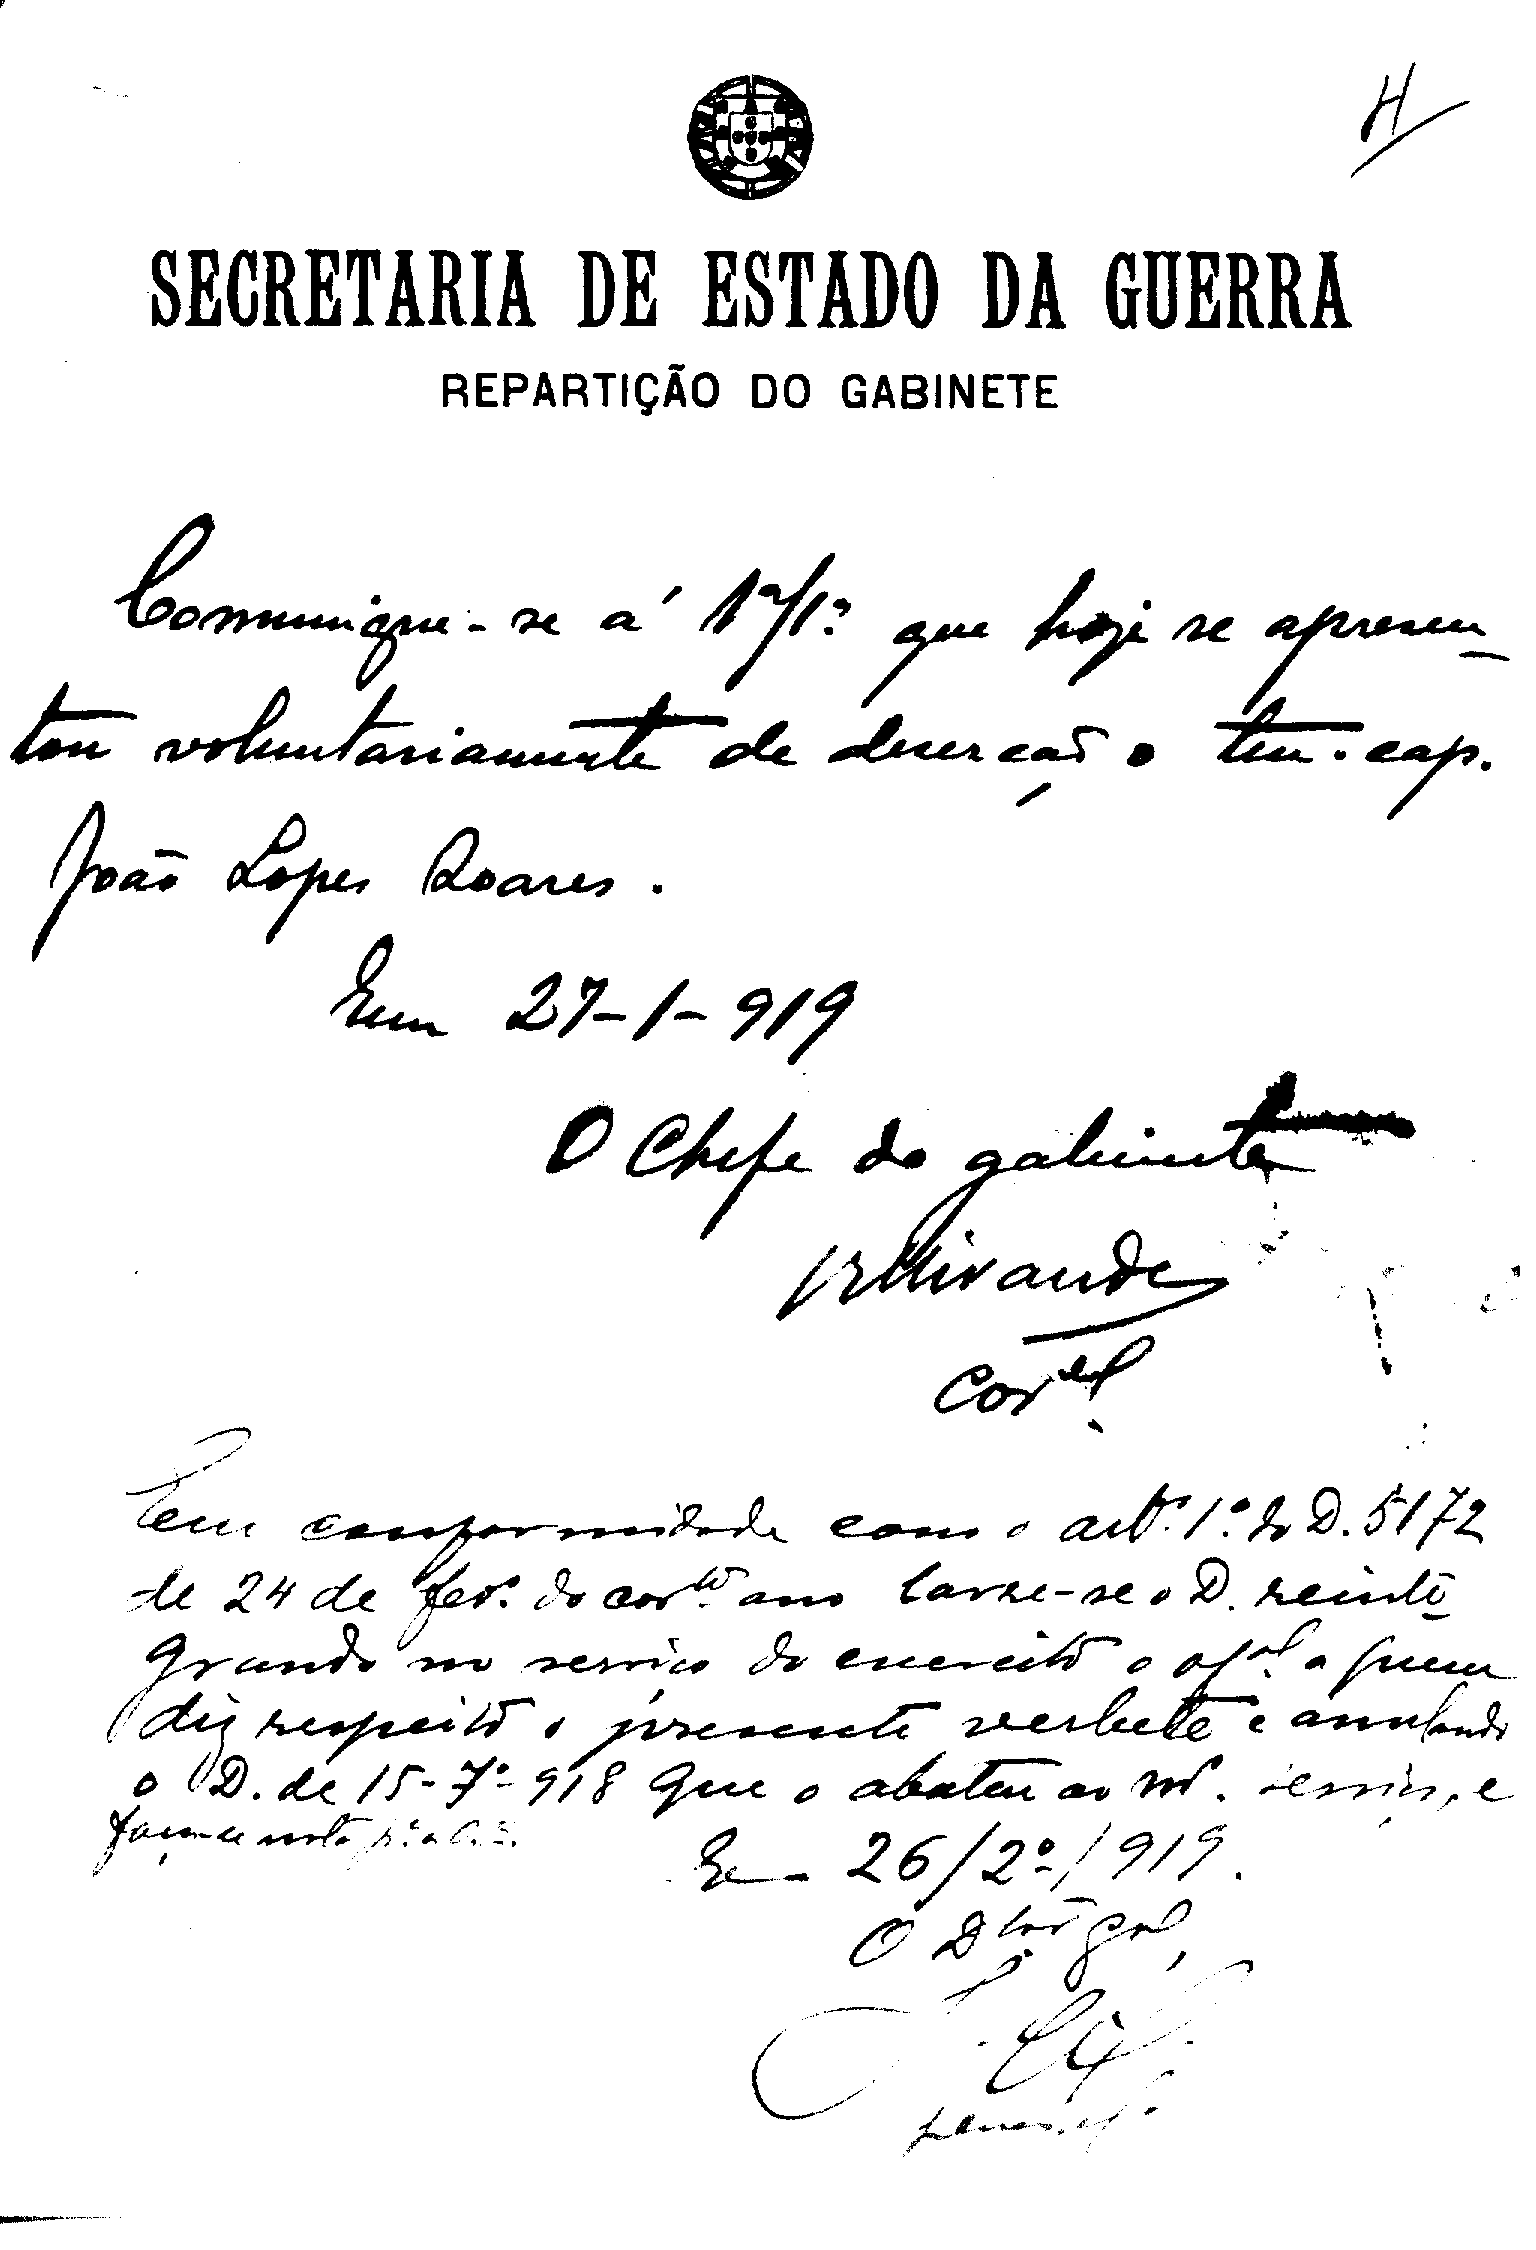 H
SECRETARIA DE ESTADO DA GUERRA
REPARTIÇÃO DO GABINETE
Comunique-se á 1ª/1ª que hoje se apresen-
tou voluntariamente de deserção o ten. cap.
João Lopes Soares.
Em 27-1-919
O Chefe do gabinete
Miranda
Cor.el
Em conformidade com o art.º 1º do D. 5172
de 24 de fev.º do cor.te ano lavre-se o D. reinte-
grando no serviço do exercito o of.al a quem
diz respeito o presente verbete e anulando
o D. de 15-7º-918 que o abateu ao m.º serviço, e
faça-se nota
Em 26/2º/919.
O D.tor g.al
general